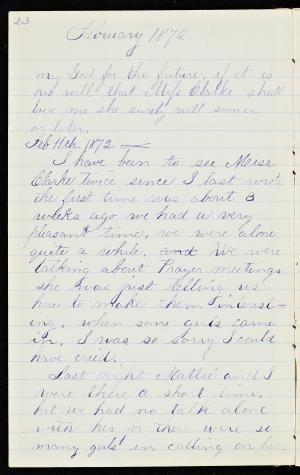 23
February 1872
my God for the future, if it is
his will that Miss Clarke shall
love me she surely will sooner
or later.
Feb 11th. 1872 —
I have been to see Miss
Clarke twice since I last wrote
the first time was about 3
weeks ago we had a very
pleasant time, we were alone
quite a while, and We were
talking about Prayer meetings
she was just telling us
how to make them interest-
ing, when some girls came
in, I was so sorry I could
have cried.
Last night Mattie and I
were there a short time,
but we had no talk alone
with her for there were so
many girls in calling on her